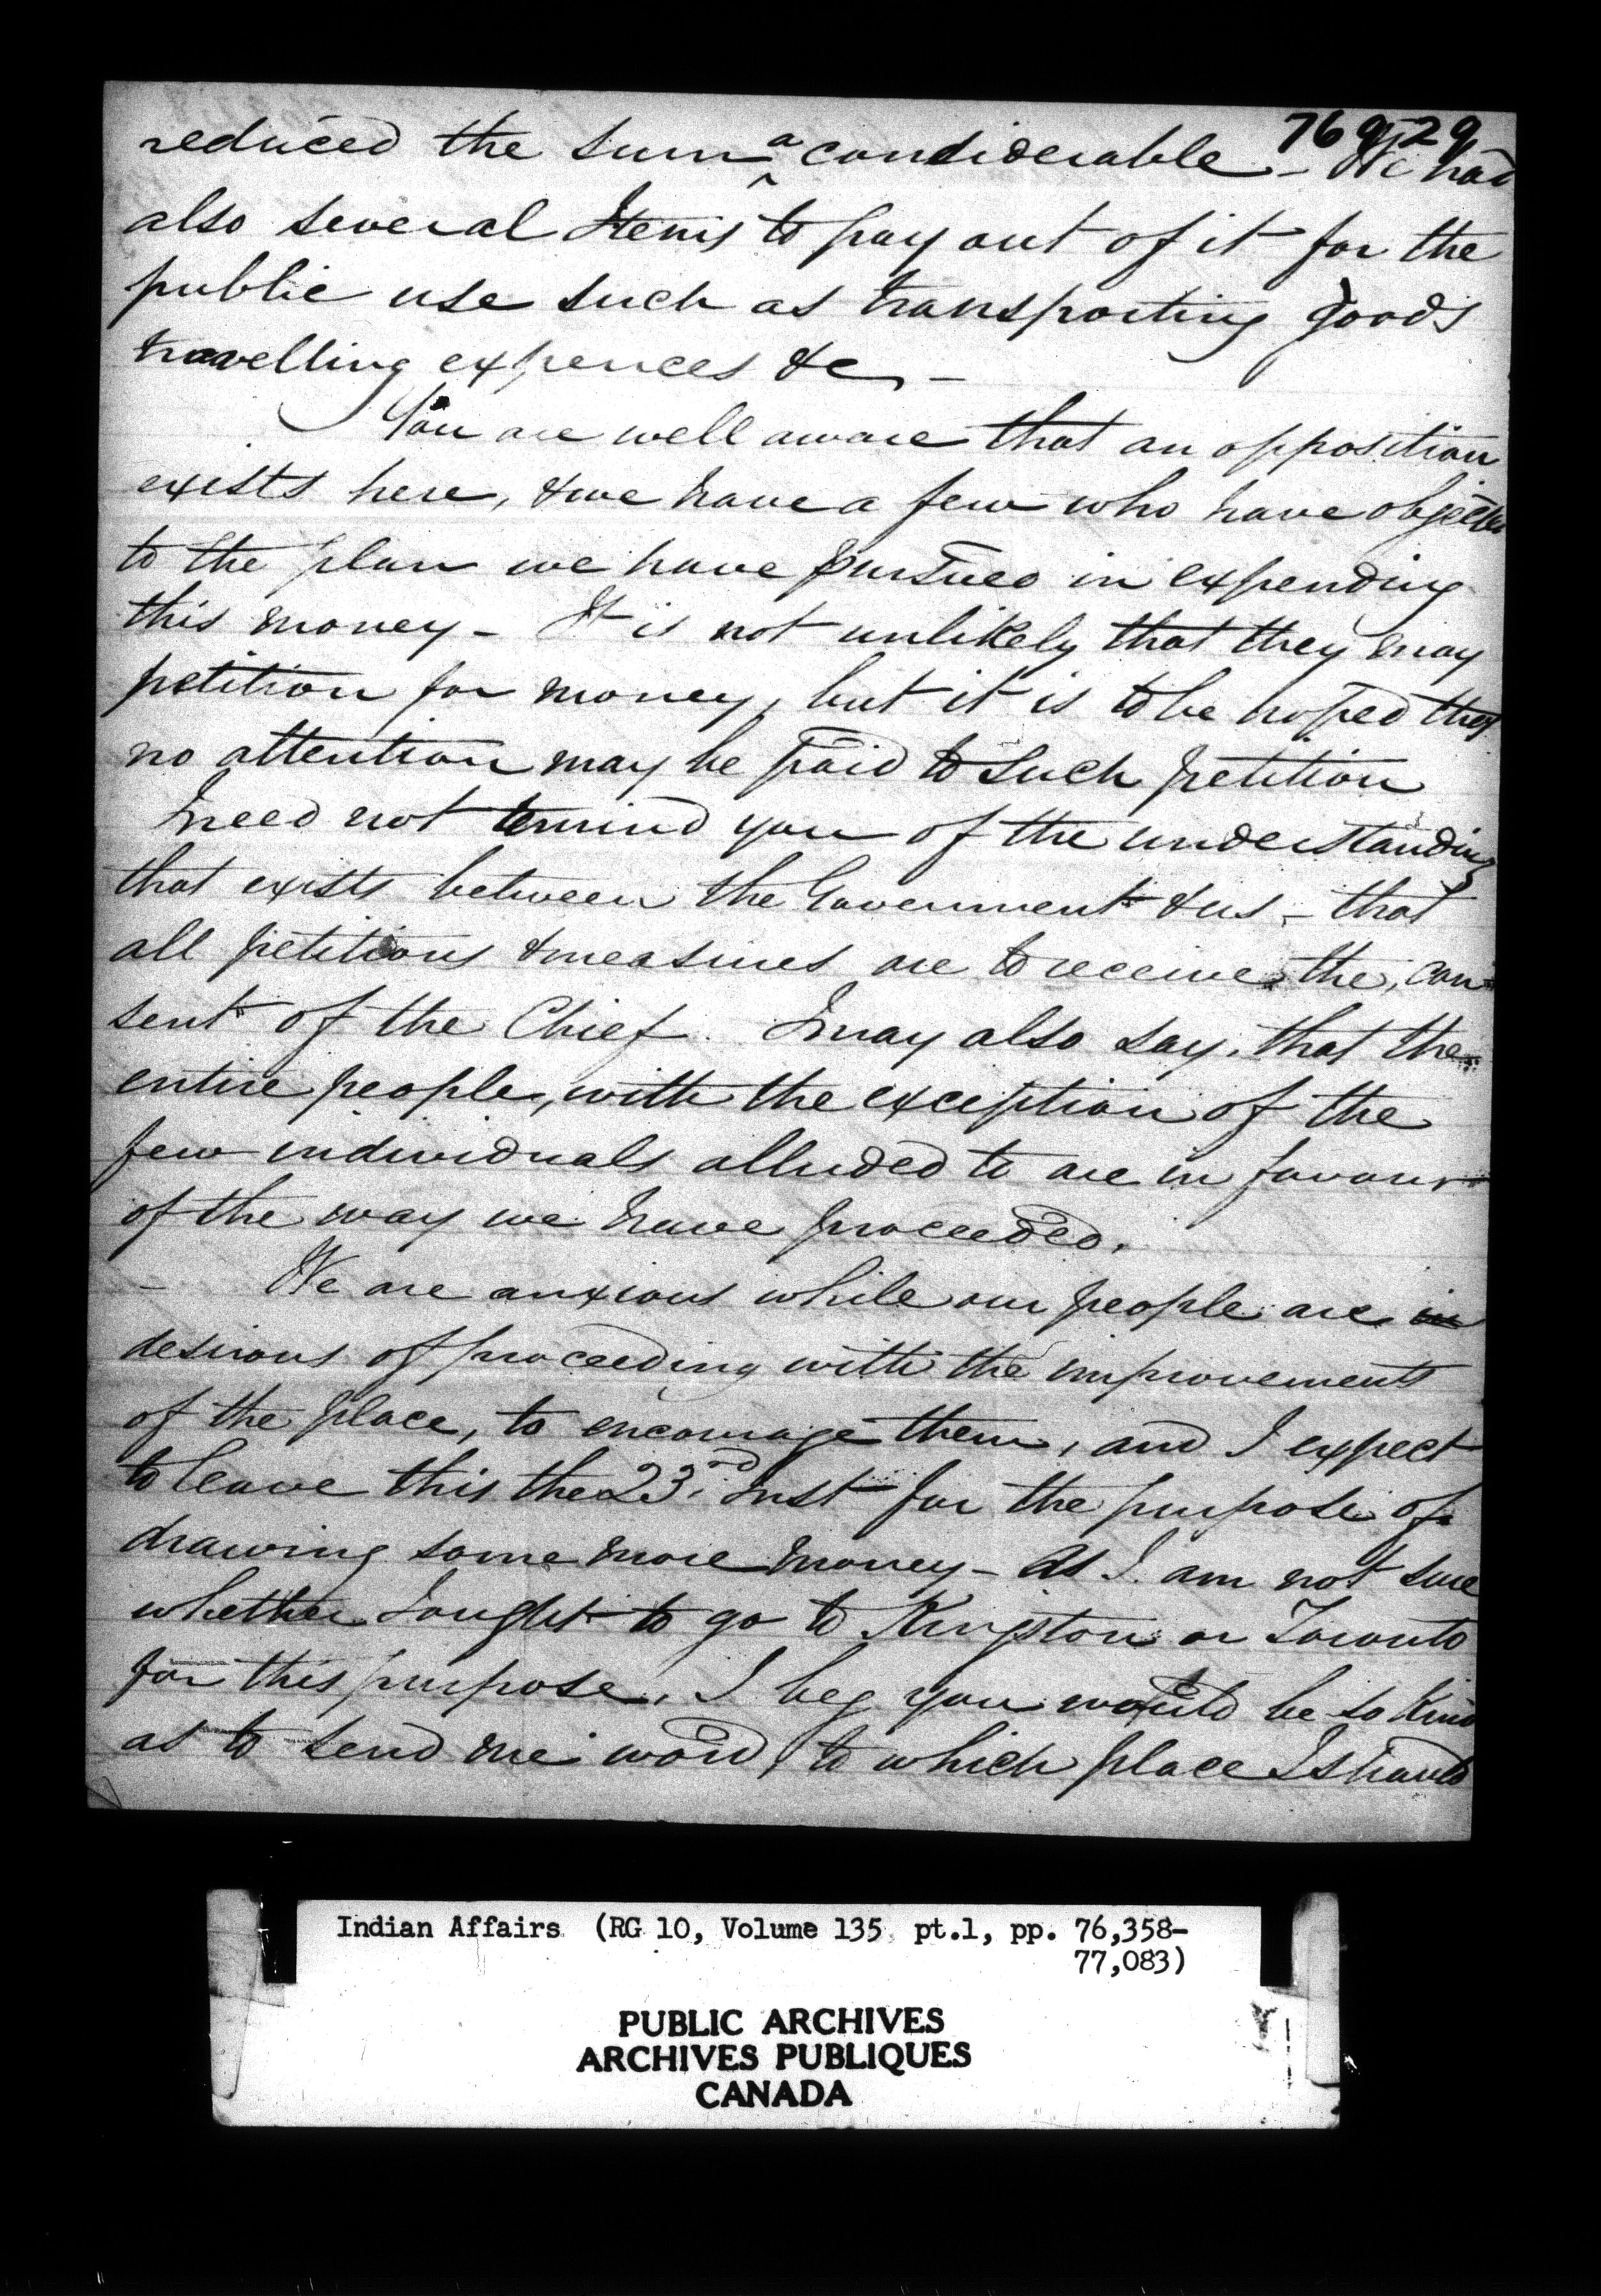 76952 9
reduced the sum a considerable - We had
also several Items to pay out of it for the
public use such as transporting goods
travelling expences &c -
You are well aware that an opposition
exists here, & we have a few who have objected
to the plan we have pursued in expending
this money - It is not unlikely that they may
petition for money, but it is to be hoped that
no attention may be paid to such petition
I need not remind you of the understanding
that exists between the Government & us - that
all petitions & measures are to receive the con
sent of the Chief. I may also say, that the
entire people, with the exception of the
few individuals alluded to are in favour
of the way we have proceeded.
- We are anxious while our people are in
desirous of proceeding with the improvements
of the place, to encourage them, and I expect
to leave this the 23rd Inst for the purpose of
drawing some more money - As I am not sure
whether I ought to go to Kingston or Toronto
for this purpose. I beg you would be so kind
as to send me word, to which place I should
Indian Affairs (RG 10, Volume 135 pt.1, pp. 76,358-
77,083)
PUBLIC ARCHIVES
ARCHIVES PUBLIQUES
CANADA